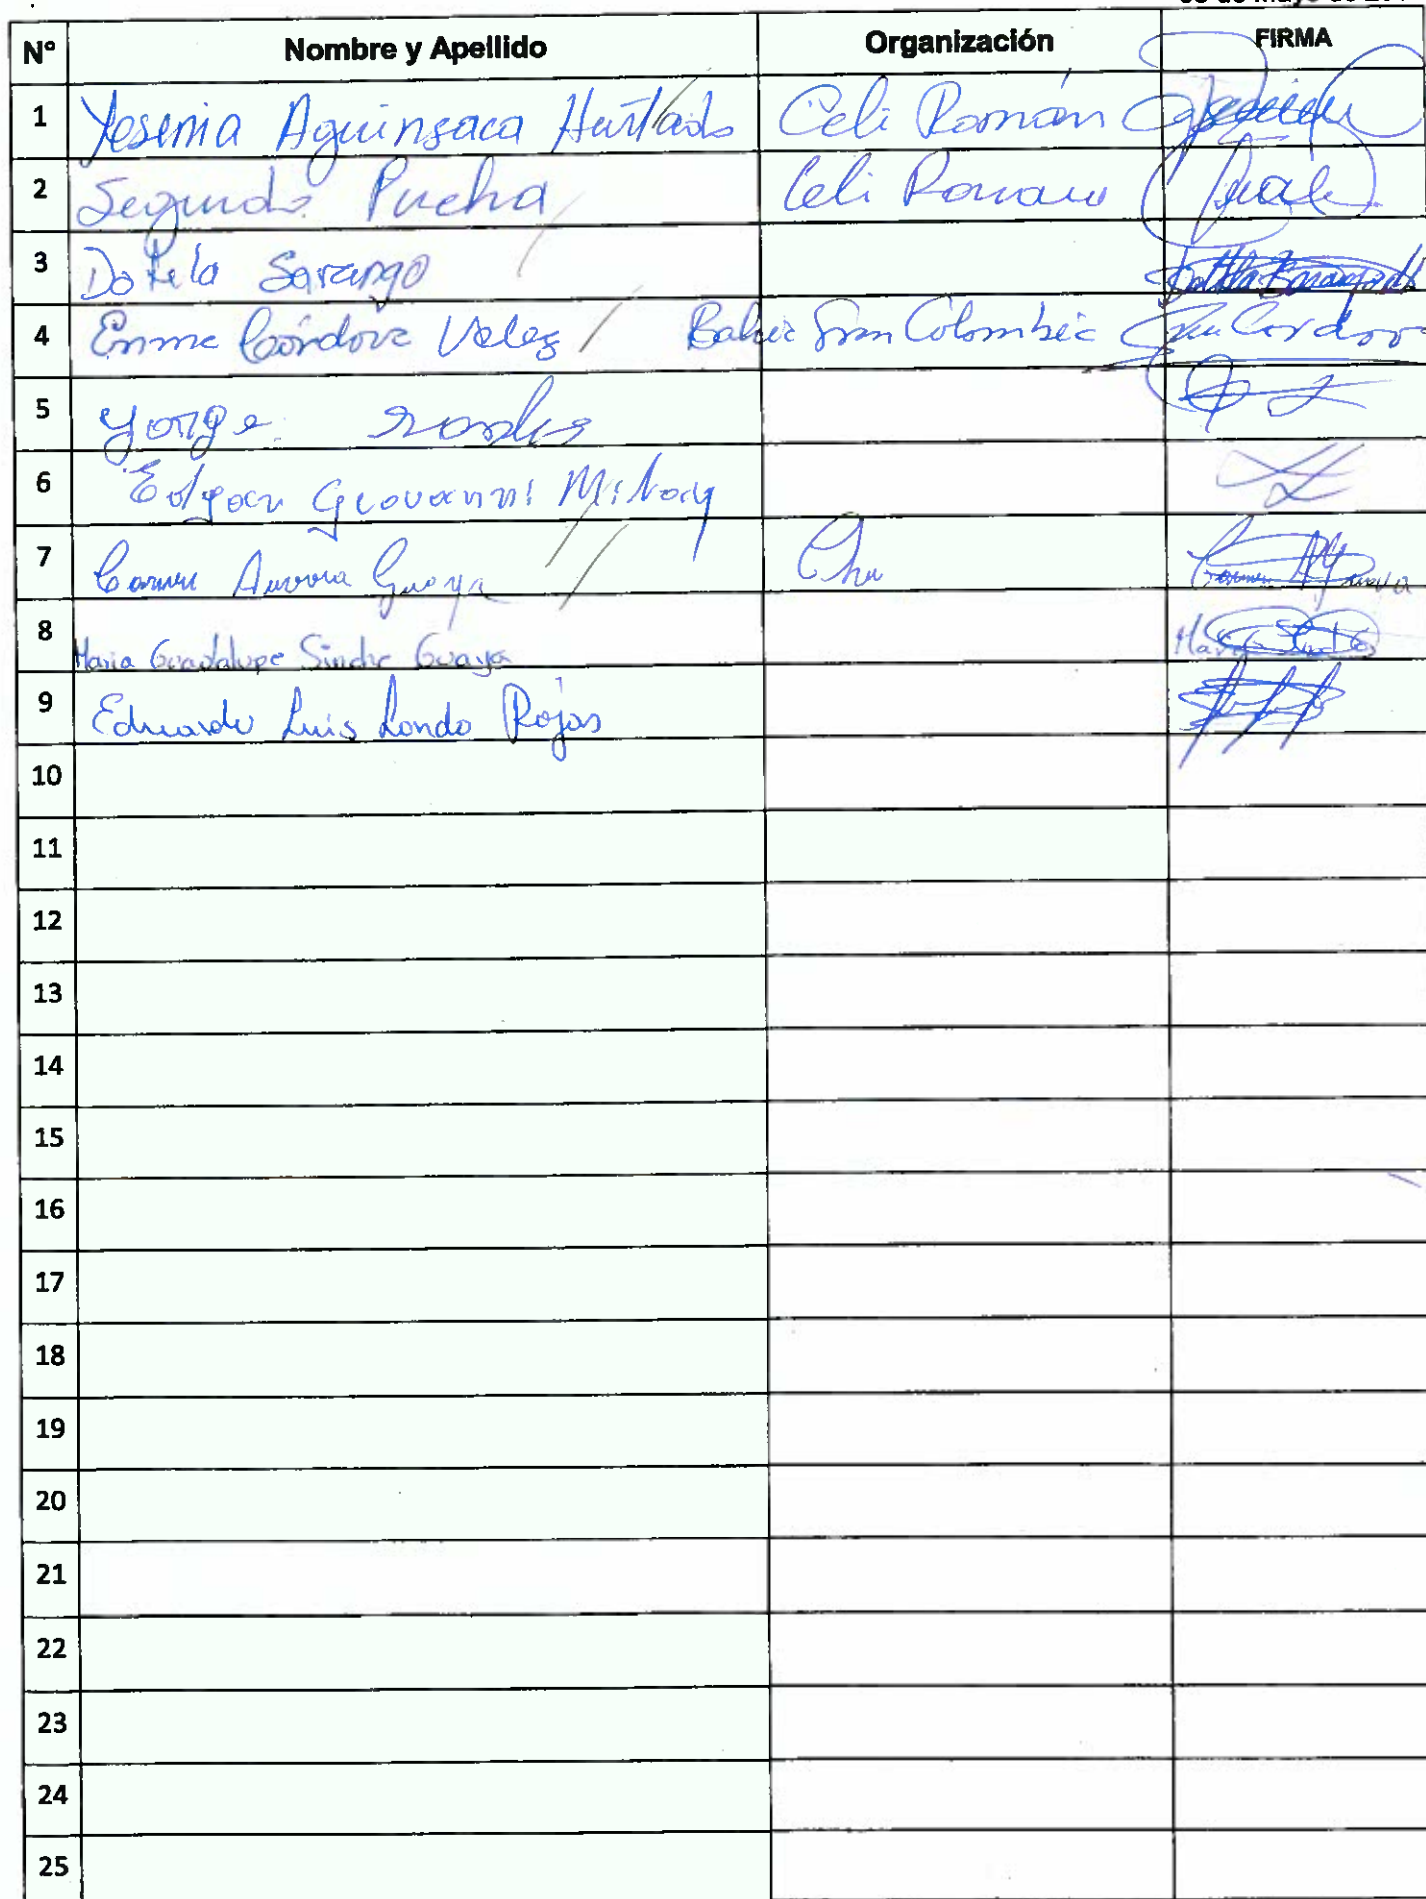 de Mayo de
Nº Nombre y Apellido Organización FIRMA
1 Yesenia Aguinsaca Hurtado Celi Román
2 Segundo Pucha Celi Roman
3 Sarango
4 Enme Córdova Velez Bahia Gran Colombia
5 Yorge
6 Edgar Geovanni
7 Carmen Aurora Guaya
8 Maria Guadalupe Sinche Guaya Maria
9 Eduardo Luis Londo Rojas
10
11
12
13
14
15
16
17
18
19
20
21
22
23
24
25